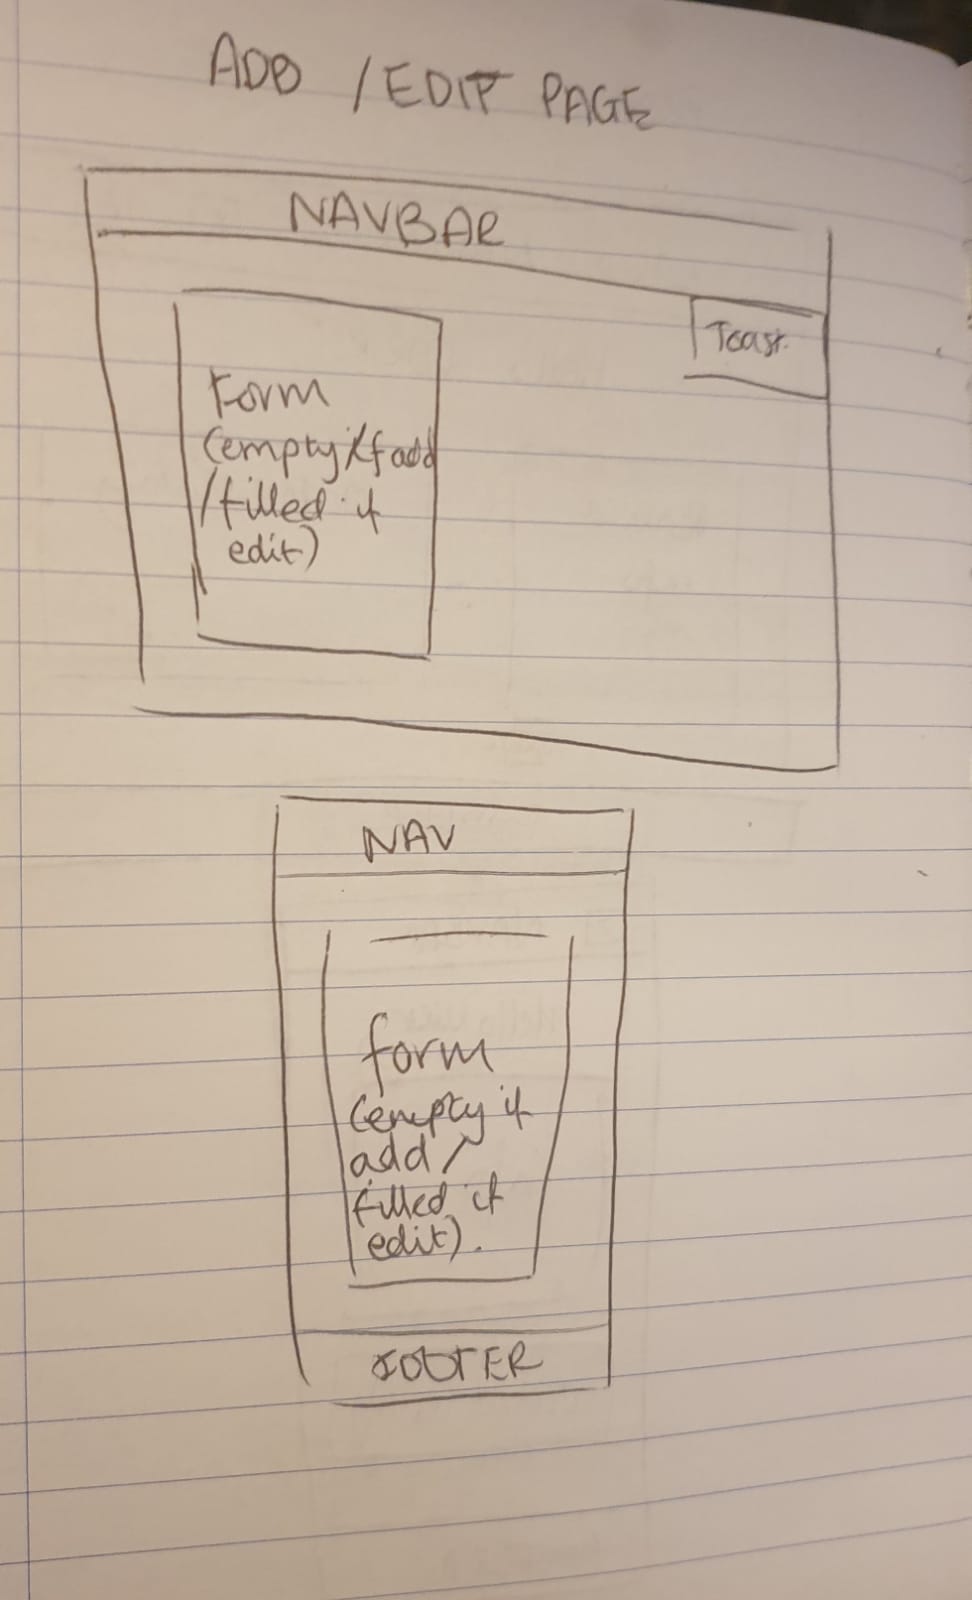 ADD / EDIT PAGE
NAVBAR
Toast.
Form
(empty if add
/filled if
edit)
NAV
form
(empty if
add /
filled if
edit).
FOOTER